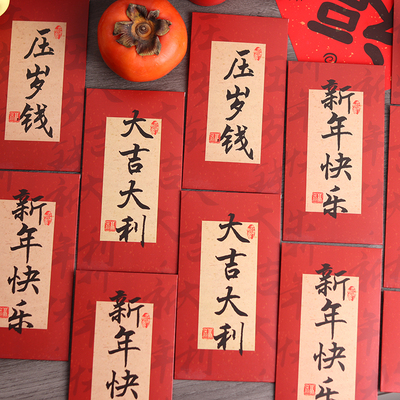 压岁钱
大吉大利
压岁钱
新年快乐
新年快乐
大吉大利
新年快
新年快